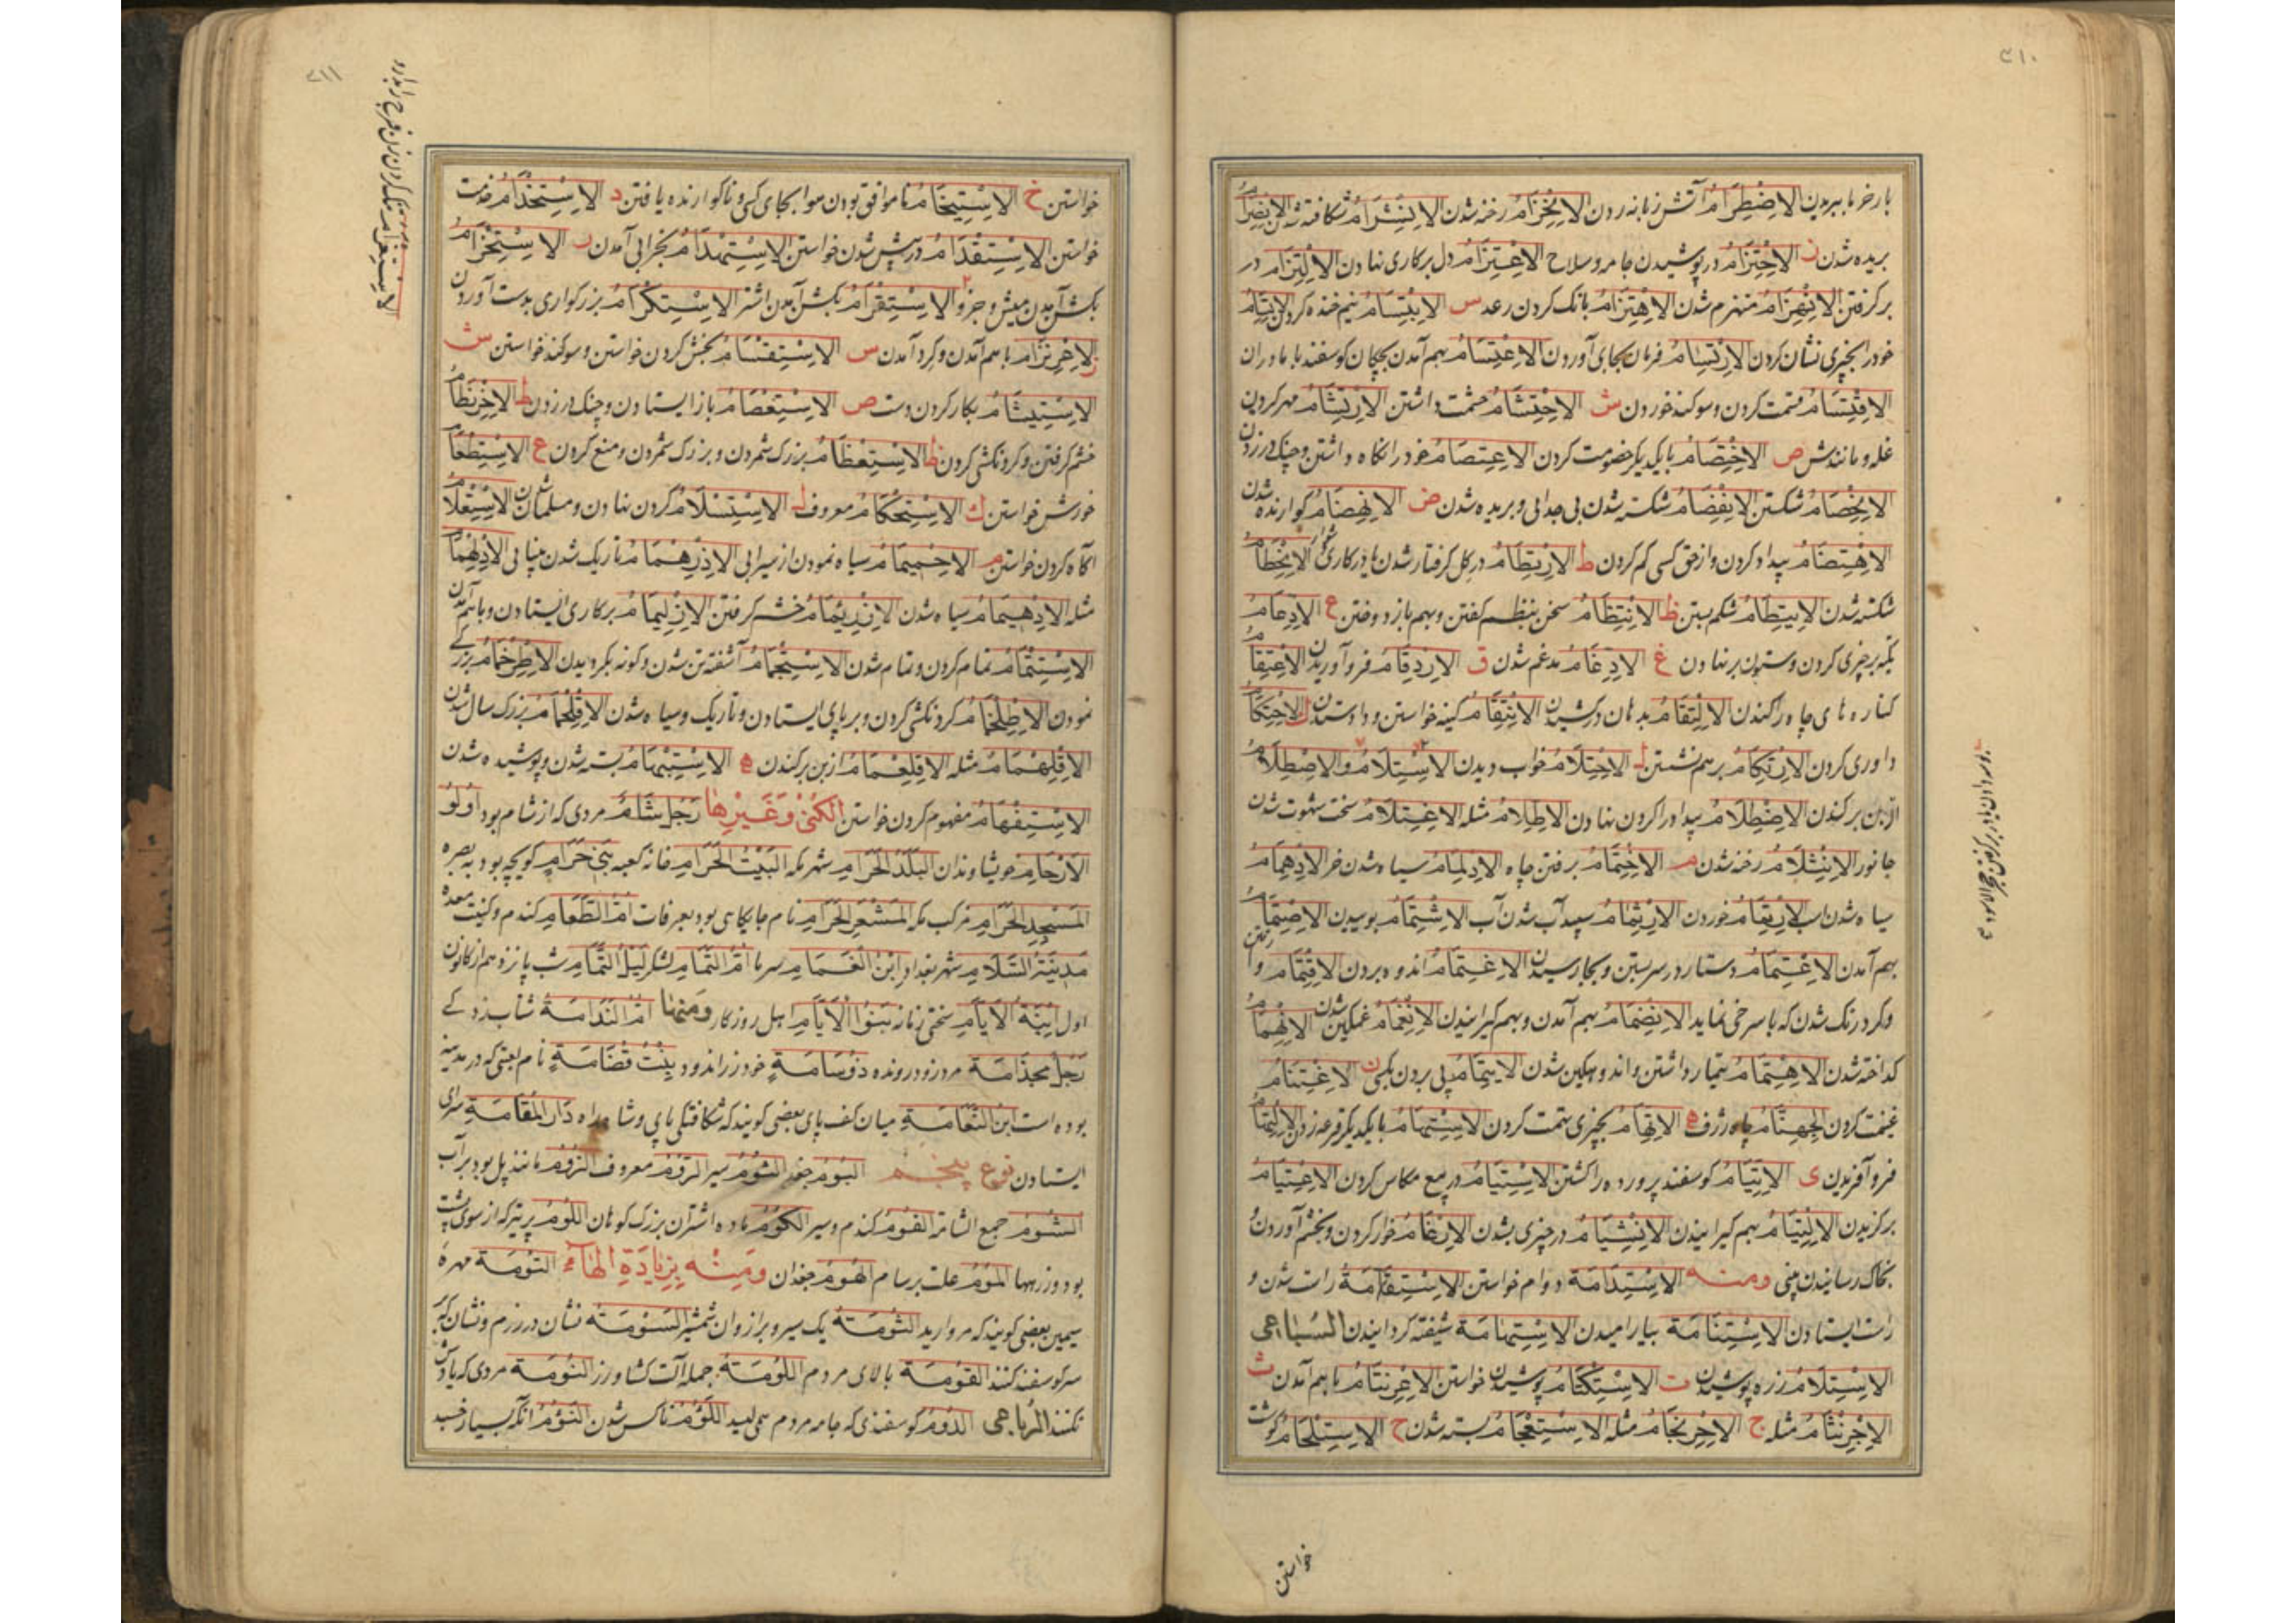 ٣١٠
بار خرما ببریدن الاِضْطِرَامُ آتش زبانه زدن الاِنْخِرَامُ رخنه شدن الاِنْشِرَامُ شکافته شدن الاِنْصِرَامُ
بریده شدن ز الاِحْتِزَامُ در پوشیدن جامه و سلاح الاِعْتِزَامُ دل بر کاری نهادن الاِلْتِزَامُ در
بر کرفتن الاِنْهِزَامُ منهزم شدن الاِهْتِزَامُ بانک کردن رعد س الاِبْتِسَامُ نیم خنده کردن
خود را بچیزی نشان کردن الاِرْتِسَامُ فرمان بجای آوردن الاِغْتِسَامُ بهم آمدن بچکان کوسفند با مادران
الاِقْتِسَامُ قسمت کردن و سوکند خوردن ش الاِحْتِشَامُ حشمت داشتن الاِرْتِشَامُ مهر کردن
غله و مانندش ص الاِخْتِصَامُ با یکدیکر خصومت کردن الاِعْتِصَامُ خود را نکاه داشتن و چنک در زدن
شکستن الاِنْفِصَامُ شکسته شدن بی جدایی و بریده شدن ض الاِنْهِضَامُ کوارنده شدن
الاِهْتِضَامُ بیداد کردن و از حق کسی کم کردن ط الاِرْتِطَامُ در کل کرفتار شدن یا در کاری دشوار الاِنْحِطَامُ
شکسته شدن شکم بستن ظ الاِنْتِظَامُ سخن بنظم کفتن و بهم باز دوختن ع الاِدِّعَامُ
تکیه بر چیزی کردن و ستون بر نهادن غ الاِدِّغَامُ مدغم شدن ق الاِزْدِقَامُ فرو آوریدن الاِعْتِقَامُ
کناره های چاه را کندن الاِلْتِقَامُ بدهان در کشیدن الاِنْتِقَامُ کینه خواستن و داد ستدن ك الاِحْتِكَامُ
داوری کردن الاِرْتِكَامُ بر هم نشستن ل الاِحْتِلَامُ خواب دیدن الاِسْتِلَامُ و الاِصْطِلَامُ
از بن بر کندن الاِضْطِلَامُ بیداد را کردن نهادن الاِطِّلَامُ مثله الاِغْتِلَامُ سخت شهوت شدن
جانور الاِنْثِلَامُ رخنه شدن م الاِخْتِمَامُ برفتن چاه الاِدْلِمَامُ سیاه شدن خر الاِدْهِمَامُ
سیاه شدن اسب الاِرْتِمَامُ خوردن الاِرْثِمَامُ سپید آب شدن آب الاِشْتِمَامُ بوییدن
بهم آمدن الاِعْتِمَامُ دستار در سر بستن و بجا رسیدن الاِغْتِمَامُ اندوه بردن الاِقْتِمَامُ رفتن
و کرد رنک شدن که با سرخی نماید الاِنْضِمَامُ بهم آمدن و بهم کیرانیدن الاِنْغِمَامُ غمکین شدن الاِنْهِمَامُ
کداخته شدن الاِهْتِمَامُ تیمار داشتن و اندوهکین شدن پی بردن بکسی ن الاِغْتِنَامُ
غنیمت کردن چاه ژرف ه الاِتِّهَامُ بچیزی تهمت کردن الاِسْتِهَامُ با یکدیکر قرعه زدن الاِلْتِهَامُ
فرو آفریدن ی الاِتِّيَامُ کوسفند پرورده را کشتن الاِسْتِيَامُ در بیع مکاس کردن الاِعْتِيَامُ
بر کزیدن الاِلْتِيَامُ بهم کیرانیدن الاِنْشِيَامُ در چیزی بشدن الاِرْغَامُ خوار کردن و بخشم آوردن و
بخاک رسانیدن بینی ومنه الاِسْتِدَامَةُ دوام خواستن الاِسْتِقَامَةُ راست شدن و
راست ایستادن الاِسْتِنَامَةُ بیارامیدن الاِسْتِهَامَةُ شیفته کردانیدن السُّبَاعِي
الاِسْتِلْآمُ زره پوشیدن ت الاِسْتِكْتَامُ پوشیدن خواستن الاِعْرِنْتَامُ با هم آمدن ث
الاِجْرِنْثَامُ مثله ج الاِحْرِنْجَامُ مثله الاِسْتِعْجَامُ بسته شدن ح الاِسْتِلْحَامُ کوشت
خواستن
٣١١
خواستن خ الاِسْتِيخَامُ ناموافق بودن هوا بجای کسی و ناکوارنده یافتن د الاِسْتِخْدَامُ خدمت
خواستن الاِسْتِقْدَامُ در پیش شدن خواستن الاِسْتِهْدَامُ بخرابی آمدن ر الاِسْتِحْرَامُ
بکشن آمدن میش و جز او الاِسْتِقْرَامُ بکشن آمدن اشتر الاِسْتِكْرَامُ بزرکواری بدست آوردن
ز الاِحْرِنْزَامُ با هم آمدن و کرد آمدن س الاِسْتِقْسَامُ بخش کردن خواستن و سوکند خواستن ش
الاِسْتِيشَامُ نکار کردن دست ص الاِسْتِعْصَامُ باز ایستادن و چنک در زدن ط الاِخْرِنْطَامُ
خشم کرفتن و کردنکشی کردن ظ الاِسْتِعْظَامُ بزرک شمردن و بزرک شمردن و منع کردن ع الاِسْتِطْعَامُ
خورش خواستن ك الاِسْتِحْكَامُ معروف ل الاِسْتِسْلَامُ کردن نهادن و مسلمان شدن الاِسْتِعْلَامُ
آکاه کردن خواستن م الاِحْمِيمَامُ سیاه نمودن از سیرابی الاِدْرِهْمَامُ تاریک شدن بینایی الاِدْلِهْمَامُ
مثله الاِدْهِيمَامُ سیاه شدن خشم کرفتن الاِزْلِيمَامُ بر کاری ایستادن و با هم آمدن
الاِسْتِتْمَامُ تمام کردن و تمام شدن الاِسْتِجْمَامُ آشفته تن شدن و کونه بکردیدن الاِطْرِخْمَامُ بزرکی
نمودن الاِطْلِخْمَامُ کردنکشی کردن و بر پای ایستادن و تاریک و سیاه شدن الاِقْلِحْمَامُ بزرک سال شدن
الاِقْلِهْمَامُ مثله الاِقْلِعْمَامُ از بن بر کندن ه الاِسْتِبْهَامُ بسته شدن و پوشیده شدن
الاِسْتِفْهَامُ مفهوم کردن خواستن الكُنَى وَغَيْرِهَا رَجُلٌ شَآمٌ مردی که از شام بود اُولُو
الاَرْحَامِ خویشاوندان البَلَدُ الحَرَامِ شهر مکه البَيْتُ الحَرَامِ خانه کعبه بَنِي حَرَامٍ کویچه بود به بصره
المَسْجِدِ الحَرَامِ مزکت مکه المَشْعَرِ الحَرَامِ نام جایکاهی بود بعرفات اُمُّ الطَّعَامِ کندم و کنیت معده
مَدِينَةُ السَّلَامِ شهر بغداد اِبْنُ الغَمَامِ سرما اُمُّ التَّمَامِ لشکر لَيْلُ التَّمَامِ شب پانزدهم از کانون
اول اِبْنَةُ الاَيَّامِ سختی زمانه بَنُو الاَيَّامِ اهل روزکار وَمنها اُمُّ النَّدَامَةُ شتاب زدکی
رَجُلٌ مِجْذَامَةٌ مرد زود رونده ذُو سَامَةٍ خود زر اندود بِنْتُ قُضَامَةٍ نام لعبتی که در مدینه
بوده است ابْنُ النَّعَامَةِ میان کف پای بعضی کویند که شکافتکی پای و شاه راه دَارُ المُقَامَةِ سرای
ایستادن نوع پنجم البُومُ جغد الثُّومُ سیر الرُّومُ معروف مانند پل بود بر آب
الشُّومُ جمع الشامة الفُومُ کندم و سیر الكُومُ ماده اشتران بزرک کوهان اللُّومُ پر تیر که از سوی پشت
بود و زرهها المُومُ علت برسام الهُومُ جغدان وَمِنْه بِزِيَادَةِ الهَاء التُّومَةُ مهره
سیمین بعضی کویند که مروارید الثُّومَةُ یک سیر و برازوان شمشیر السُّومَةُ نشان در رزم و نشان که بر
سر کوسفند کنند القُومَةُ بالای مردم اللُّومَةُ جمله آلت کشاورز النُّومَةُ مردی که یادش
نکنند الرُّبَاعِي الدُّومُ کوسفندی که جامه مردم همی لیسد اللُّؤُمُ ناکس شدن النُّوَّمُ آنکه بسیار خسبد